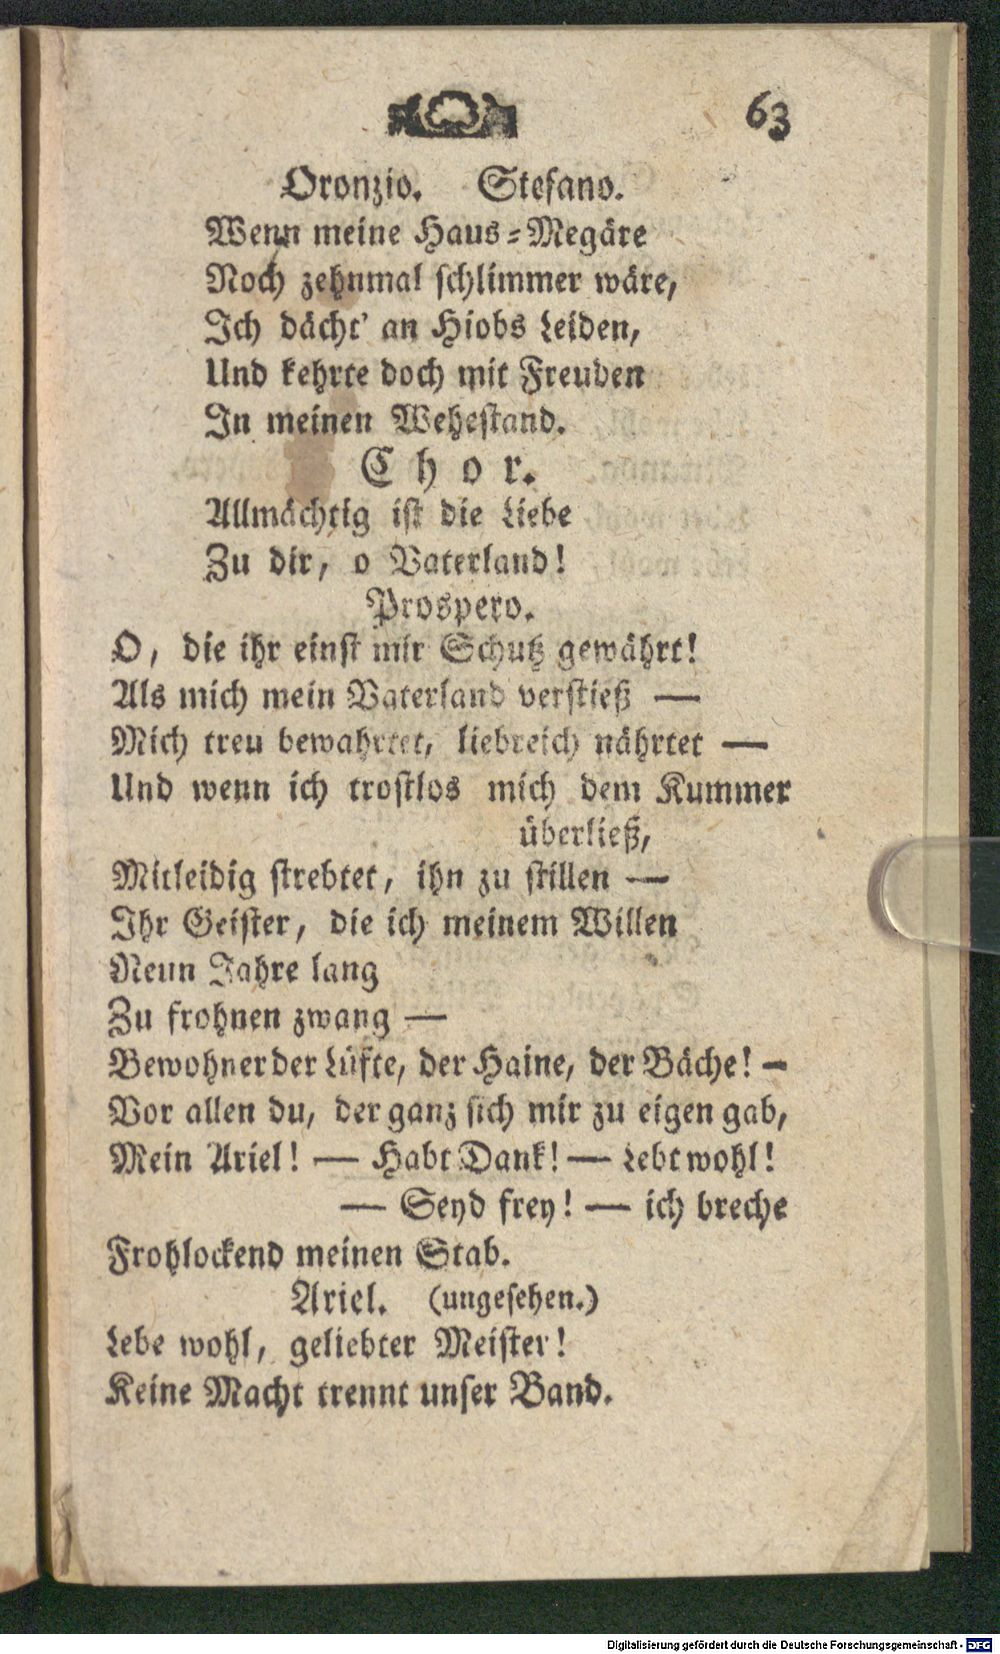 63
Oronzio. Stefano.
Wenn meine Haus-Megäre
Noch zehnmal schlimmer wäre,
Ich dächt' an Hiobs Leiden,
Und kehrte doch mit Freuden
In meinen Wehestand.
Chor.
Allmächtig ist die Liebe
Zu dir, o Vaterland!
Prospero.
O, die ihr einst mir Schutz gewährt!
Als mich mein Vaterland verstieß —
Mich treu bewahrtet, liebreich nährtet —
Und wenn ich trostlos mich dem Kummer
überließ,
Mitleidig strebtet, ihn zu stillen —
Ihr Geister, die ich meinem Willen
Neun Jahre lang
Zu frohnen zwang —
Bewohner der Lüfte, der Haine, der Bäche! —
Vor allen du, der ganz sich mir zu eigen gab,
Mein Ariel! — Habt Dank! — Lebt wohl!
— Seyd frey! — ich breche
Frohlockend meinen Stab.
Ariel. (ungesehen.)
Lebe wohl, geliebter Meister!
Keine Macht trennt unser Band.
Digitalisierung gefördert durch die Deutsche Forschungsgemeinschaft - DFG